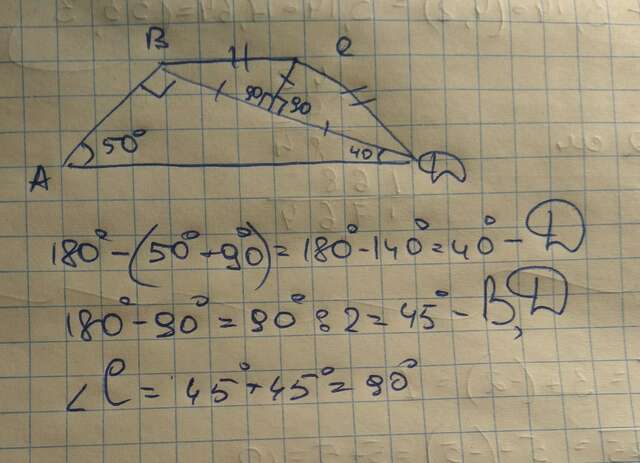 B C
90 90
A 50° 40 D
180° - (50° + 90°) = 180° - 140° = 40° - D
180° - 90° = 90° : 2 = 45° - B, D
∠C = 45° + 45° = 90°